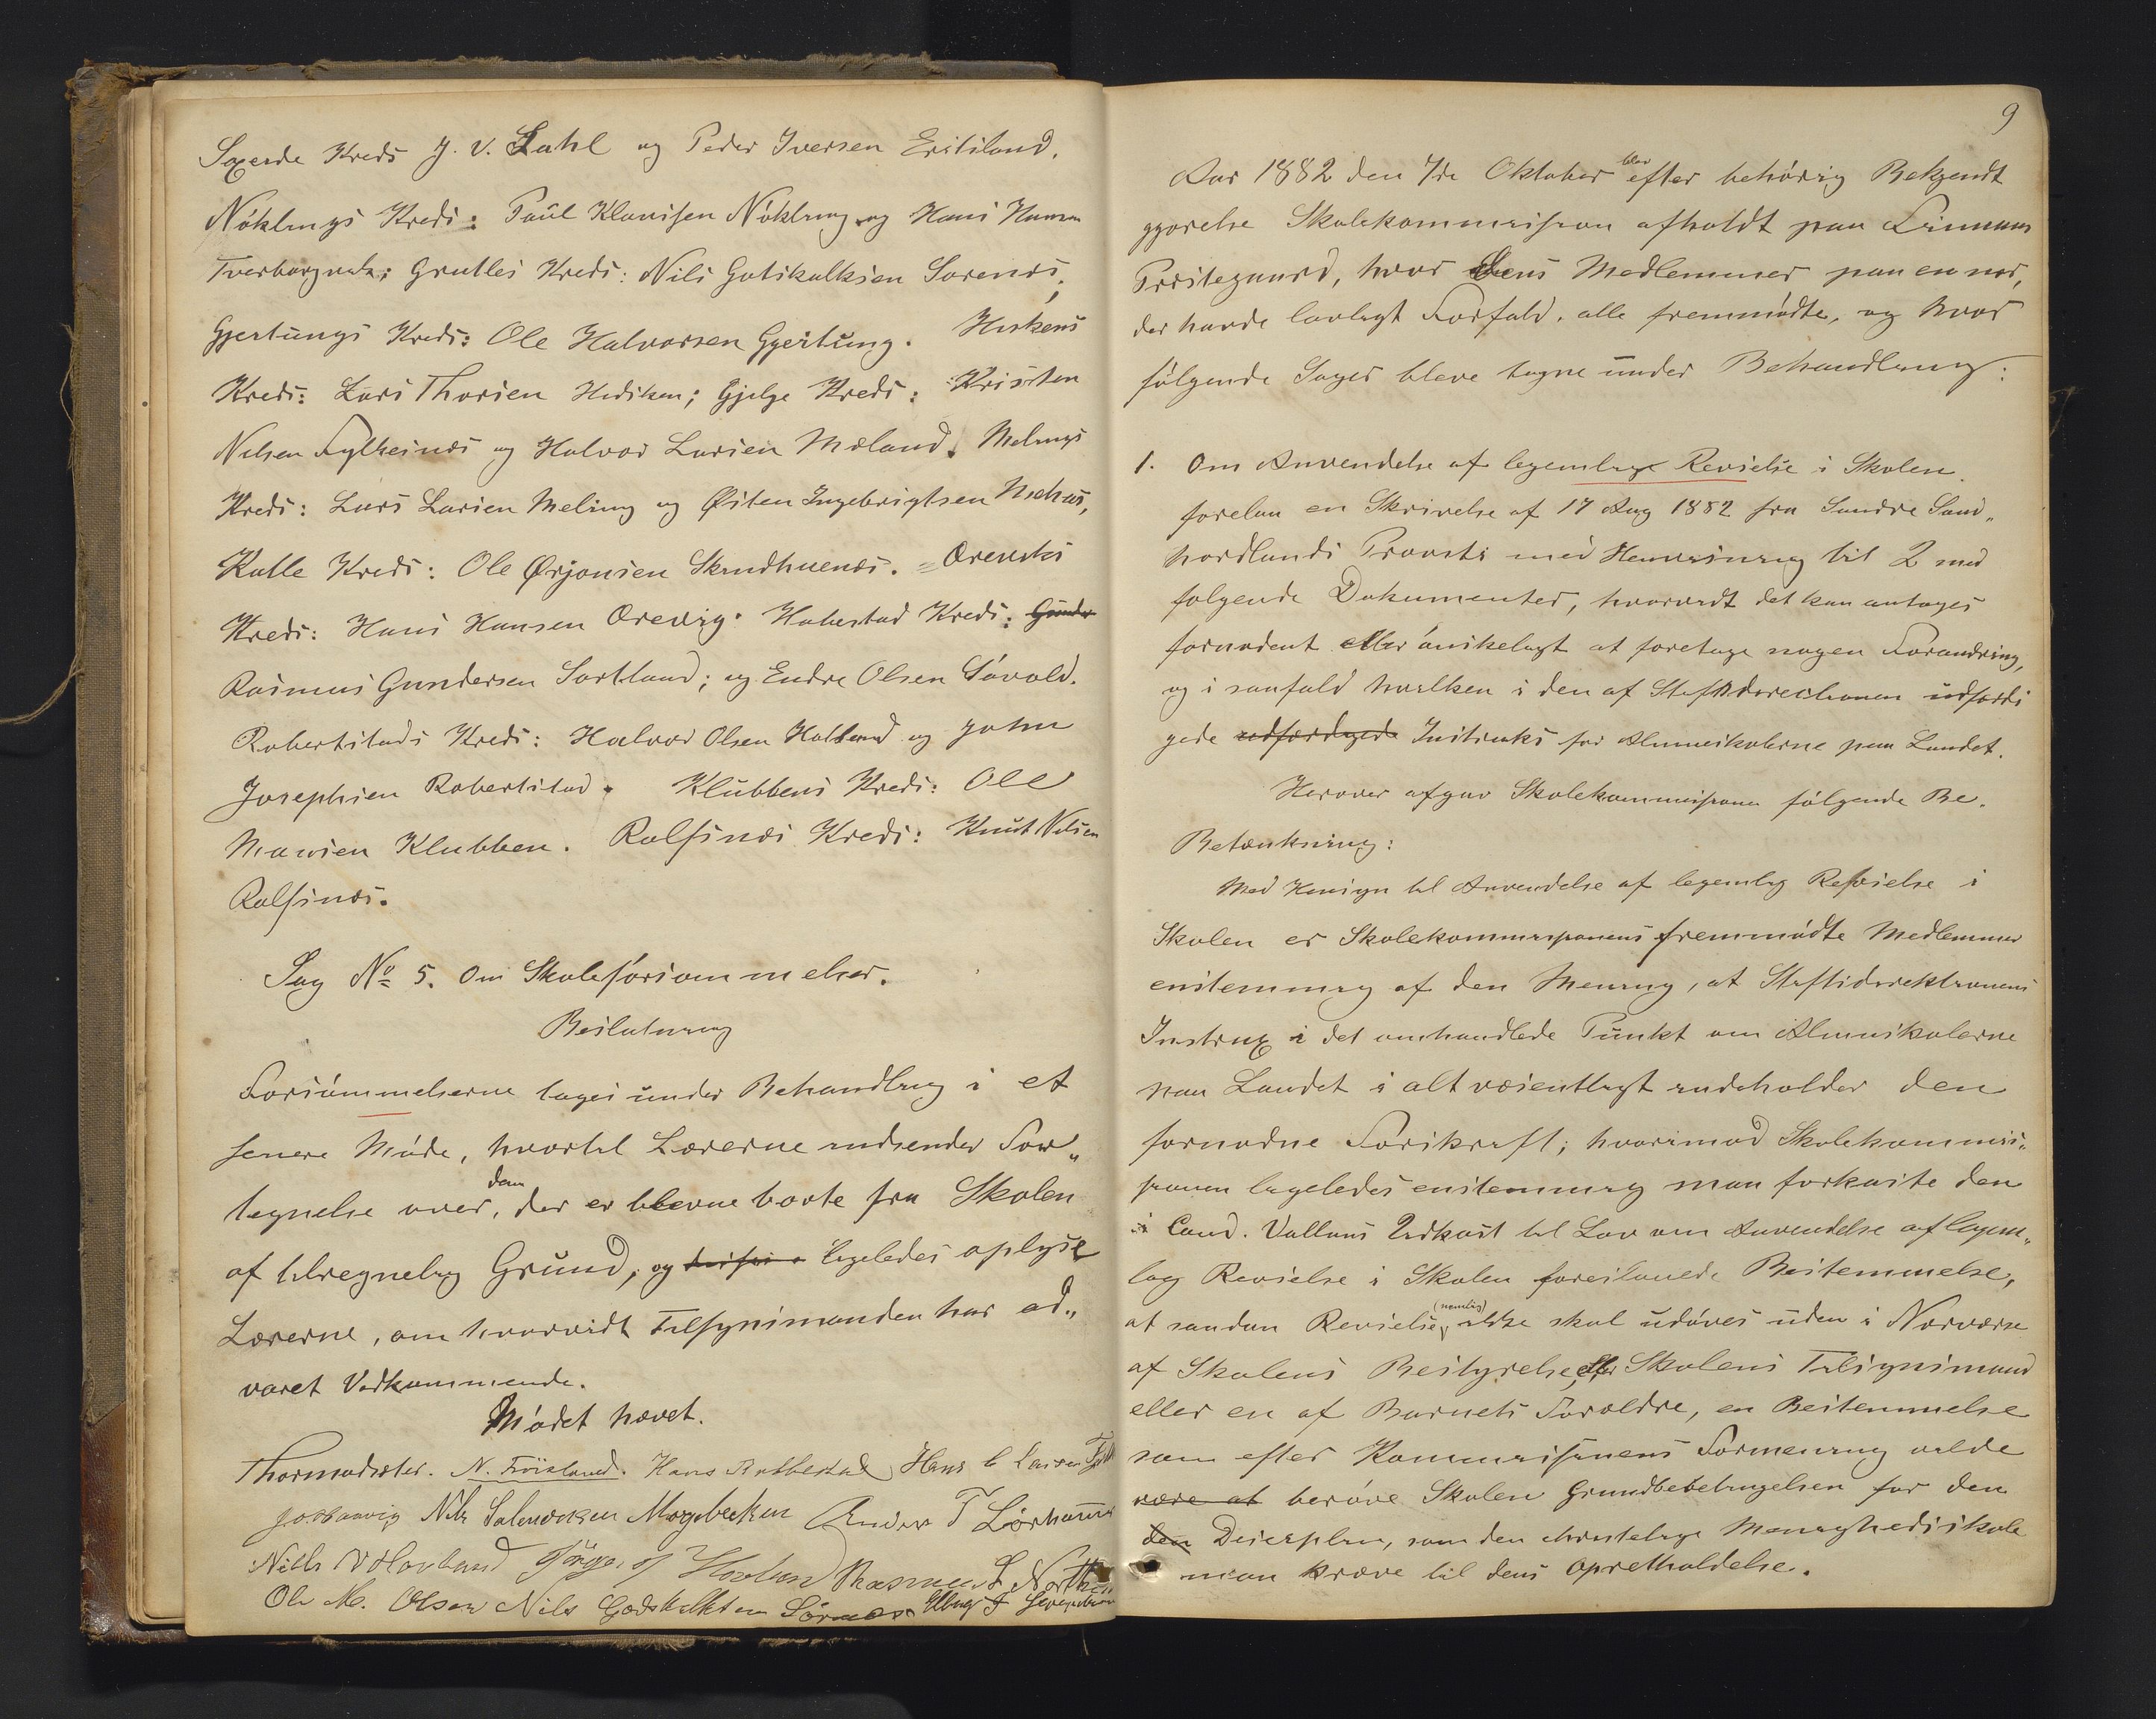 Sexerde Kreds J. V. Sahl og Peder Iversen Eritsland.
Nöklings Kreds: Paul Klausen Nökling og Hans Hansen
Tverborgvik; Grutles Kreds: Nils Gotskalksen Sörenæs;
Gjertungs Kreds: Ole Halvorsen Gjertung. Hiskens
Kreds: Lars Thorsen Hidsken; Gjelge Kreds: Kristen
Nilsen Fylkesnæs og Halvor Larsen Mæland. Melings
Kreds: Lars Larsen Meling og Østen Ingebrigtsen Nuhus,
Katle Kreds: Ole Ørjansen Skrudhuenæs. = Oreviks
Kreds: Hans Hansen Orevig. Haberstad Kreds:
Rasmus Gundersen Sortland; og Endre Olsen Tävold.
Robertstads Kreds: Halvor Olsen Halleland og John
Josephsen Robertstad. Klubbens Kreds: Ole
Monsen Klubben. Rolfsnæs Kreds: Knut Nilsen
Rolfsnæs.
Sag No 5. Om Skoleforsömmelser.
Beslutning
Forsömmelserne tages under Behandling i et
senere Möde, hvortil Lærerne indsender For„
tegnelse over dem, der er blevne borte fra Skolen
af tilregnelig Grund, og ligeledes oplyse
Lærerne, om hvorvidt Tilsynsmanden har ad„
varet Vedkommende.
Mödet hævet.
Thormodsæter. N. Fröisland. Hans Rolbekdal Hans C Larsen
Nils Salamonsen Mogebecken Anders T Lörhammer
Nills N Hovland Jörgen J Hovland Rasmus L
Ole M. Olsen Nils Godskalksen Sörenæs
9
Aar 1882 den 7de Oktober blev efter behörig Bekjendt
gjörelse Skolekommission afholdt paa Finnaas
Præstegaard, hvor dens Medlemmer paa en nær,
der havde lovligt Forfald, alle fremmödte, og hvor
fölgende Sager bleve tagne under Behandling:
1. Om Anvendelse af legemlige Revselse i Skolen.
forelaa en Skrivelse af 17 Aug 1882 fra Söndre Sönd„
hordlands Provsti med Henvisning til 2 med
fölgende Dokumenter, hvorvidt det kan antages
fornödent eller önskeligt at foretage nogen Forandring,
og i saafald hvilken i den af Stiftsdirectionen udfærdi
gede udfærdigede Instruks for Almueskolerne paa Landet.
Herover afgav Skolekommissionen fölgende Be.
Betænkning:
Med Hensyn til Anvendelse af legemlig Refselse i
Skolen er Skolekommissionens fremmödte Medlemmer
enstemmig af den Mening, at Stiftsdirektionens
Instrux i det omhandlede Punkt om Almueskolerne
paa Landet i alt væsentligt indeholder den
fornödne Forskrift; hvorimod Skolekommis„
sionen ligeledes enstemmig maa forkaste den
i Cand. Vullums Udkast til Lov om Anvendelse af legem„
lig Revselse i Skolen foreslaaede Bestemmelse,
at saadan Revselse (nemlig) ikke skal udöves uden i Nærværelse
af Skolens Bestyrelse, eller Skolens Tilsynsmand
eller en af Barnets Forældre, en Bestemmelse
som efter Kommissionens Formening vilde
være at beröve Skolen Grundbetingelsen for den
den Disciplin, som den christelige Menighedsskole
maa kræve til dens Opretholdelse.